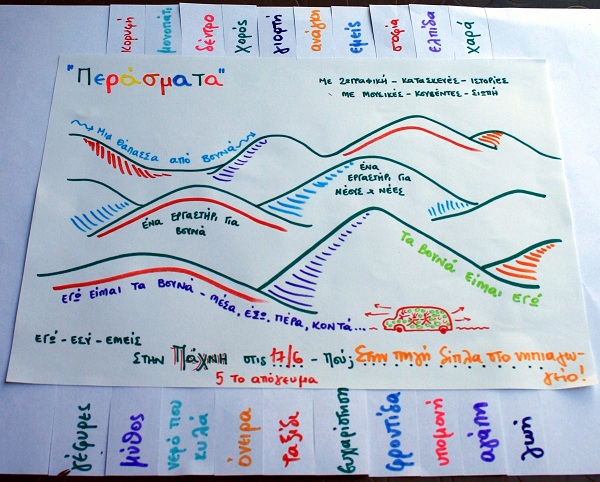 κορυφή
μονοπάτι
δέντρο
χορός
γιορτή
ανάγκη
εμείς
σοφία
ελπίδα
χαρά
"Περάσματα"
ΜΕ ΖΩΓΡΑΦΙΚΗ - ΚΑΤΑΣΚΕΥΕΣ - ΙΣΤΟΡΙΕΣ
ΜΕ ΜΟΥΣΙΚΕΣ - ΚΟΥΒΕΝΤΕΣ - ΣΙΩΠΗ
Μια θάλασσα από βουνά
ΈΝΑ
ΕΡΓΑΣΤΗΡΙ ΓΙΑ
ΝΕΟΥΣ & ΝΕΕΣ
ΈΝΑ ΕΡΓΑΣΤΗΡΙ ΓΙΑ
ΒΟΥΝΑ
ΤΑ ΒΟΥΝΑ ΕΙΜΑΙ ΕΓΩ
ΕΓΩ ΕΙΜΑΙ ΤΑ ΒΟΥΝΑ - ΜΕΣΑ, ΕΞΩ, ΠΕΡΑ, ΚΟΝΤΑ...
ΕΓΩ - ΕΣΥ - ΕΜΕΙΣ
ΣΤΗΝ ΠΑΧΝΗ ΣΤΙΣ 17/6 - Πού; Στην πηγή δίπλα στο νηπιαγω-
γείο!
5 Το απόγευμα
γέφυρες
μύθος
νερό που
κυλά
όνειρα
ταξίδι
ευχαρίστηση
φροντίδα
υπομονή
αγάπη
ζωή